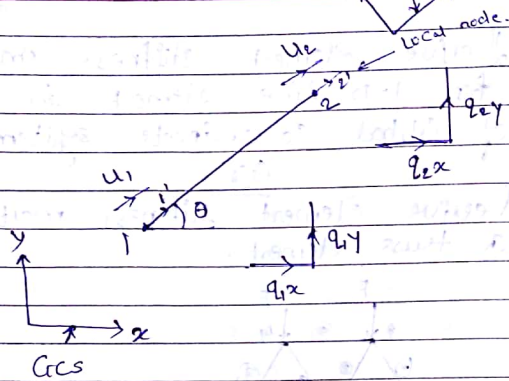 Local node.
u2
2'
2
q2y
q2x
u1
1'
θ
1
q1y
q1x
y
x
GCS